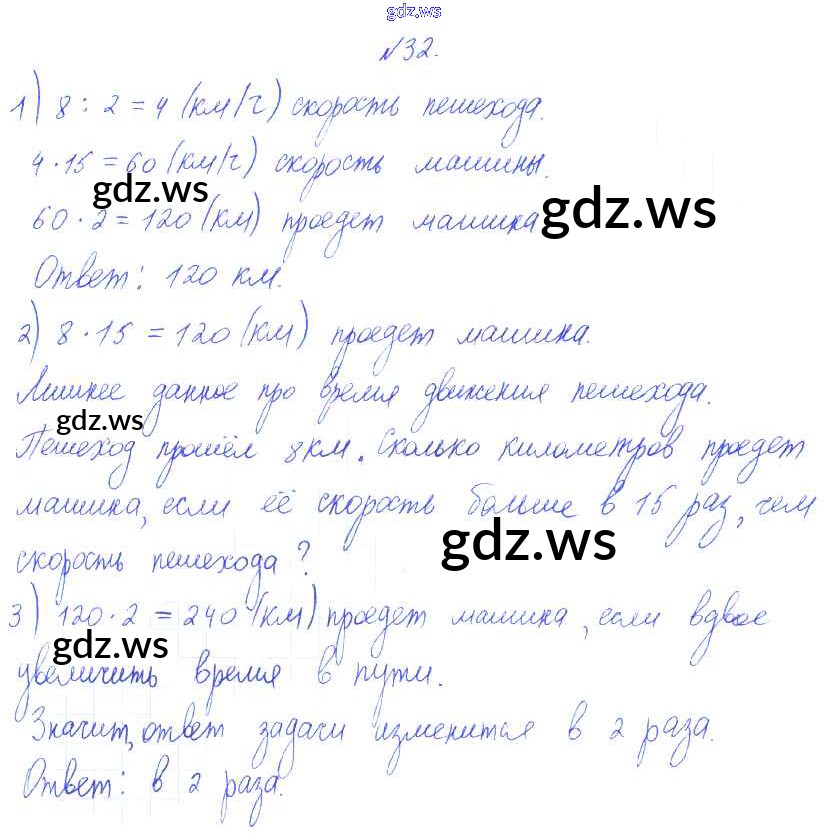 gdz.ws
№32.
1) 8 : 2 = 4 (км/ч) скорость пешехода.
4 · 15 = 60 (км/ч) скорость машины.
gdz.ws gdz.ws
60 · 2 = 120 (км) проедет машина
Ответ: 120 км.
2) 8 · 15 = 120 (км) проедет машина.
Лишнее данное про время движения пешехода.
gdz.ws
Пешеход прошёл 8 км. Сколько километров проедет
машина, если её скорость больше в 15 раз, чем
gdz.ws
скорость пешехода?
3) 120 · 2 = 240 (км) проедет машина, если вдвое
gdz.ws
увеличить время в пути.
Значит, ответ задачи изменится в 2 раза.
Ответ: в 2 раза.